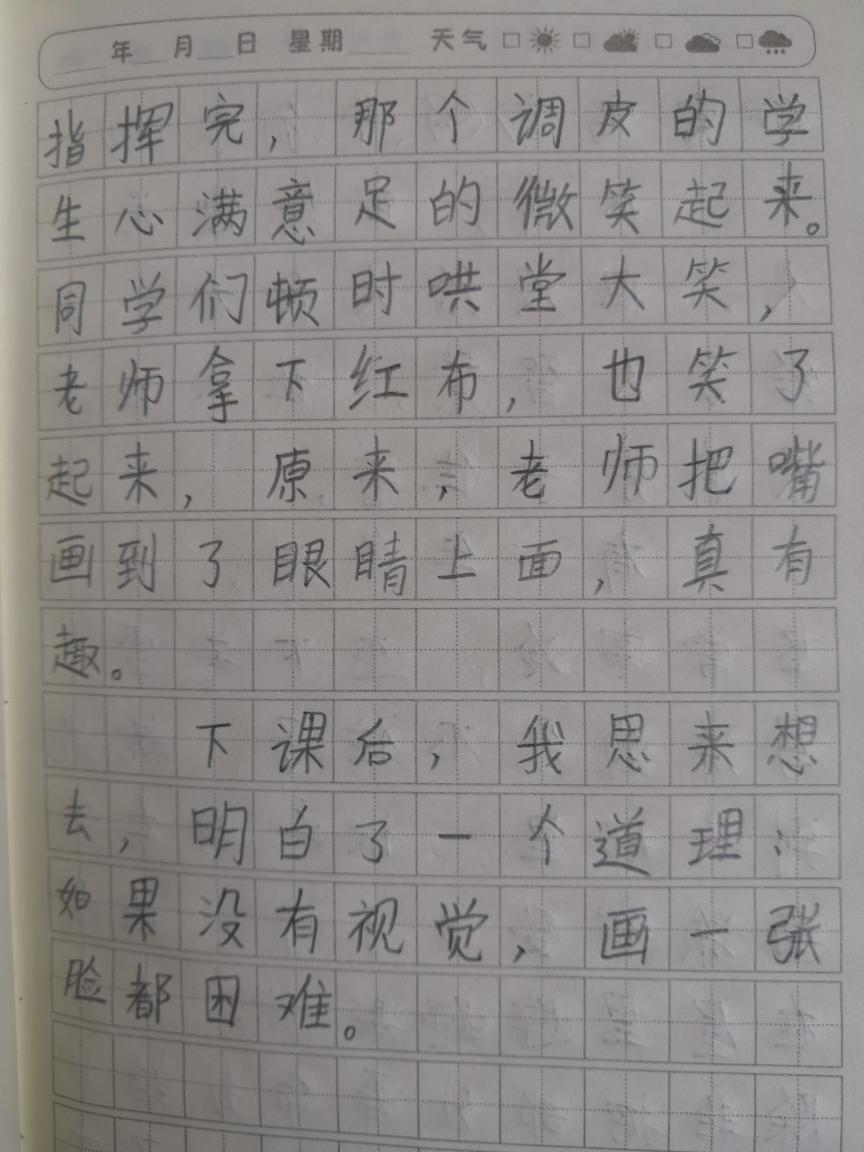 年 月 日 星期 天气
指挥完，那个调皮的学
生心满意足的微笑起来。
同学们顿时哄堂大笑，
老师拿下红布，也笑了
起来，原来，老师把嘴
画到了眼睛上面，真有
趣。
下课后，我思来想
去，明白了一个道理：
如果没有视觉，画一张
脸都困难。